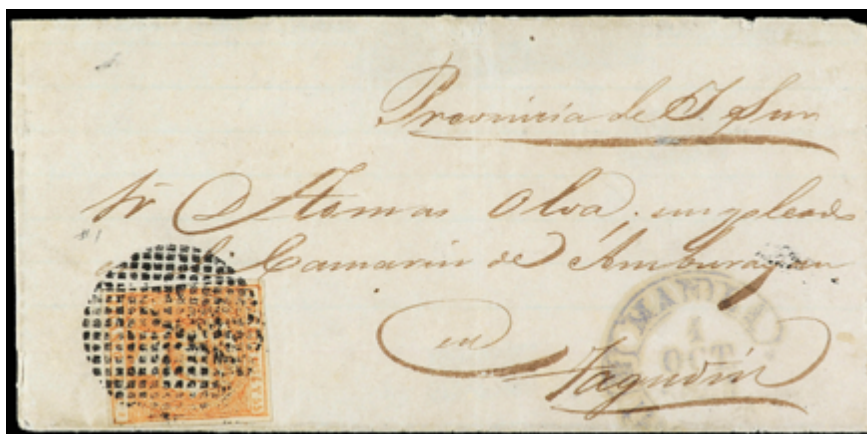 Provincia de I. Sur
Sr D. Tomas Olva, empleado
en el Camarin de Amburayan
en
Tagudin
MANILA
1
OCT